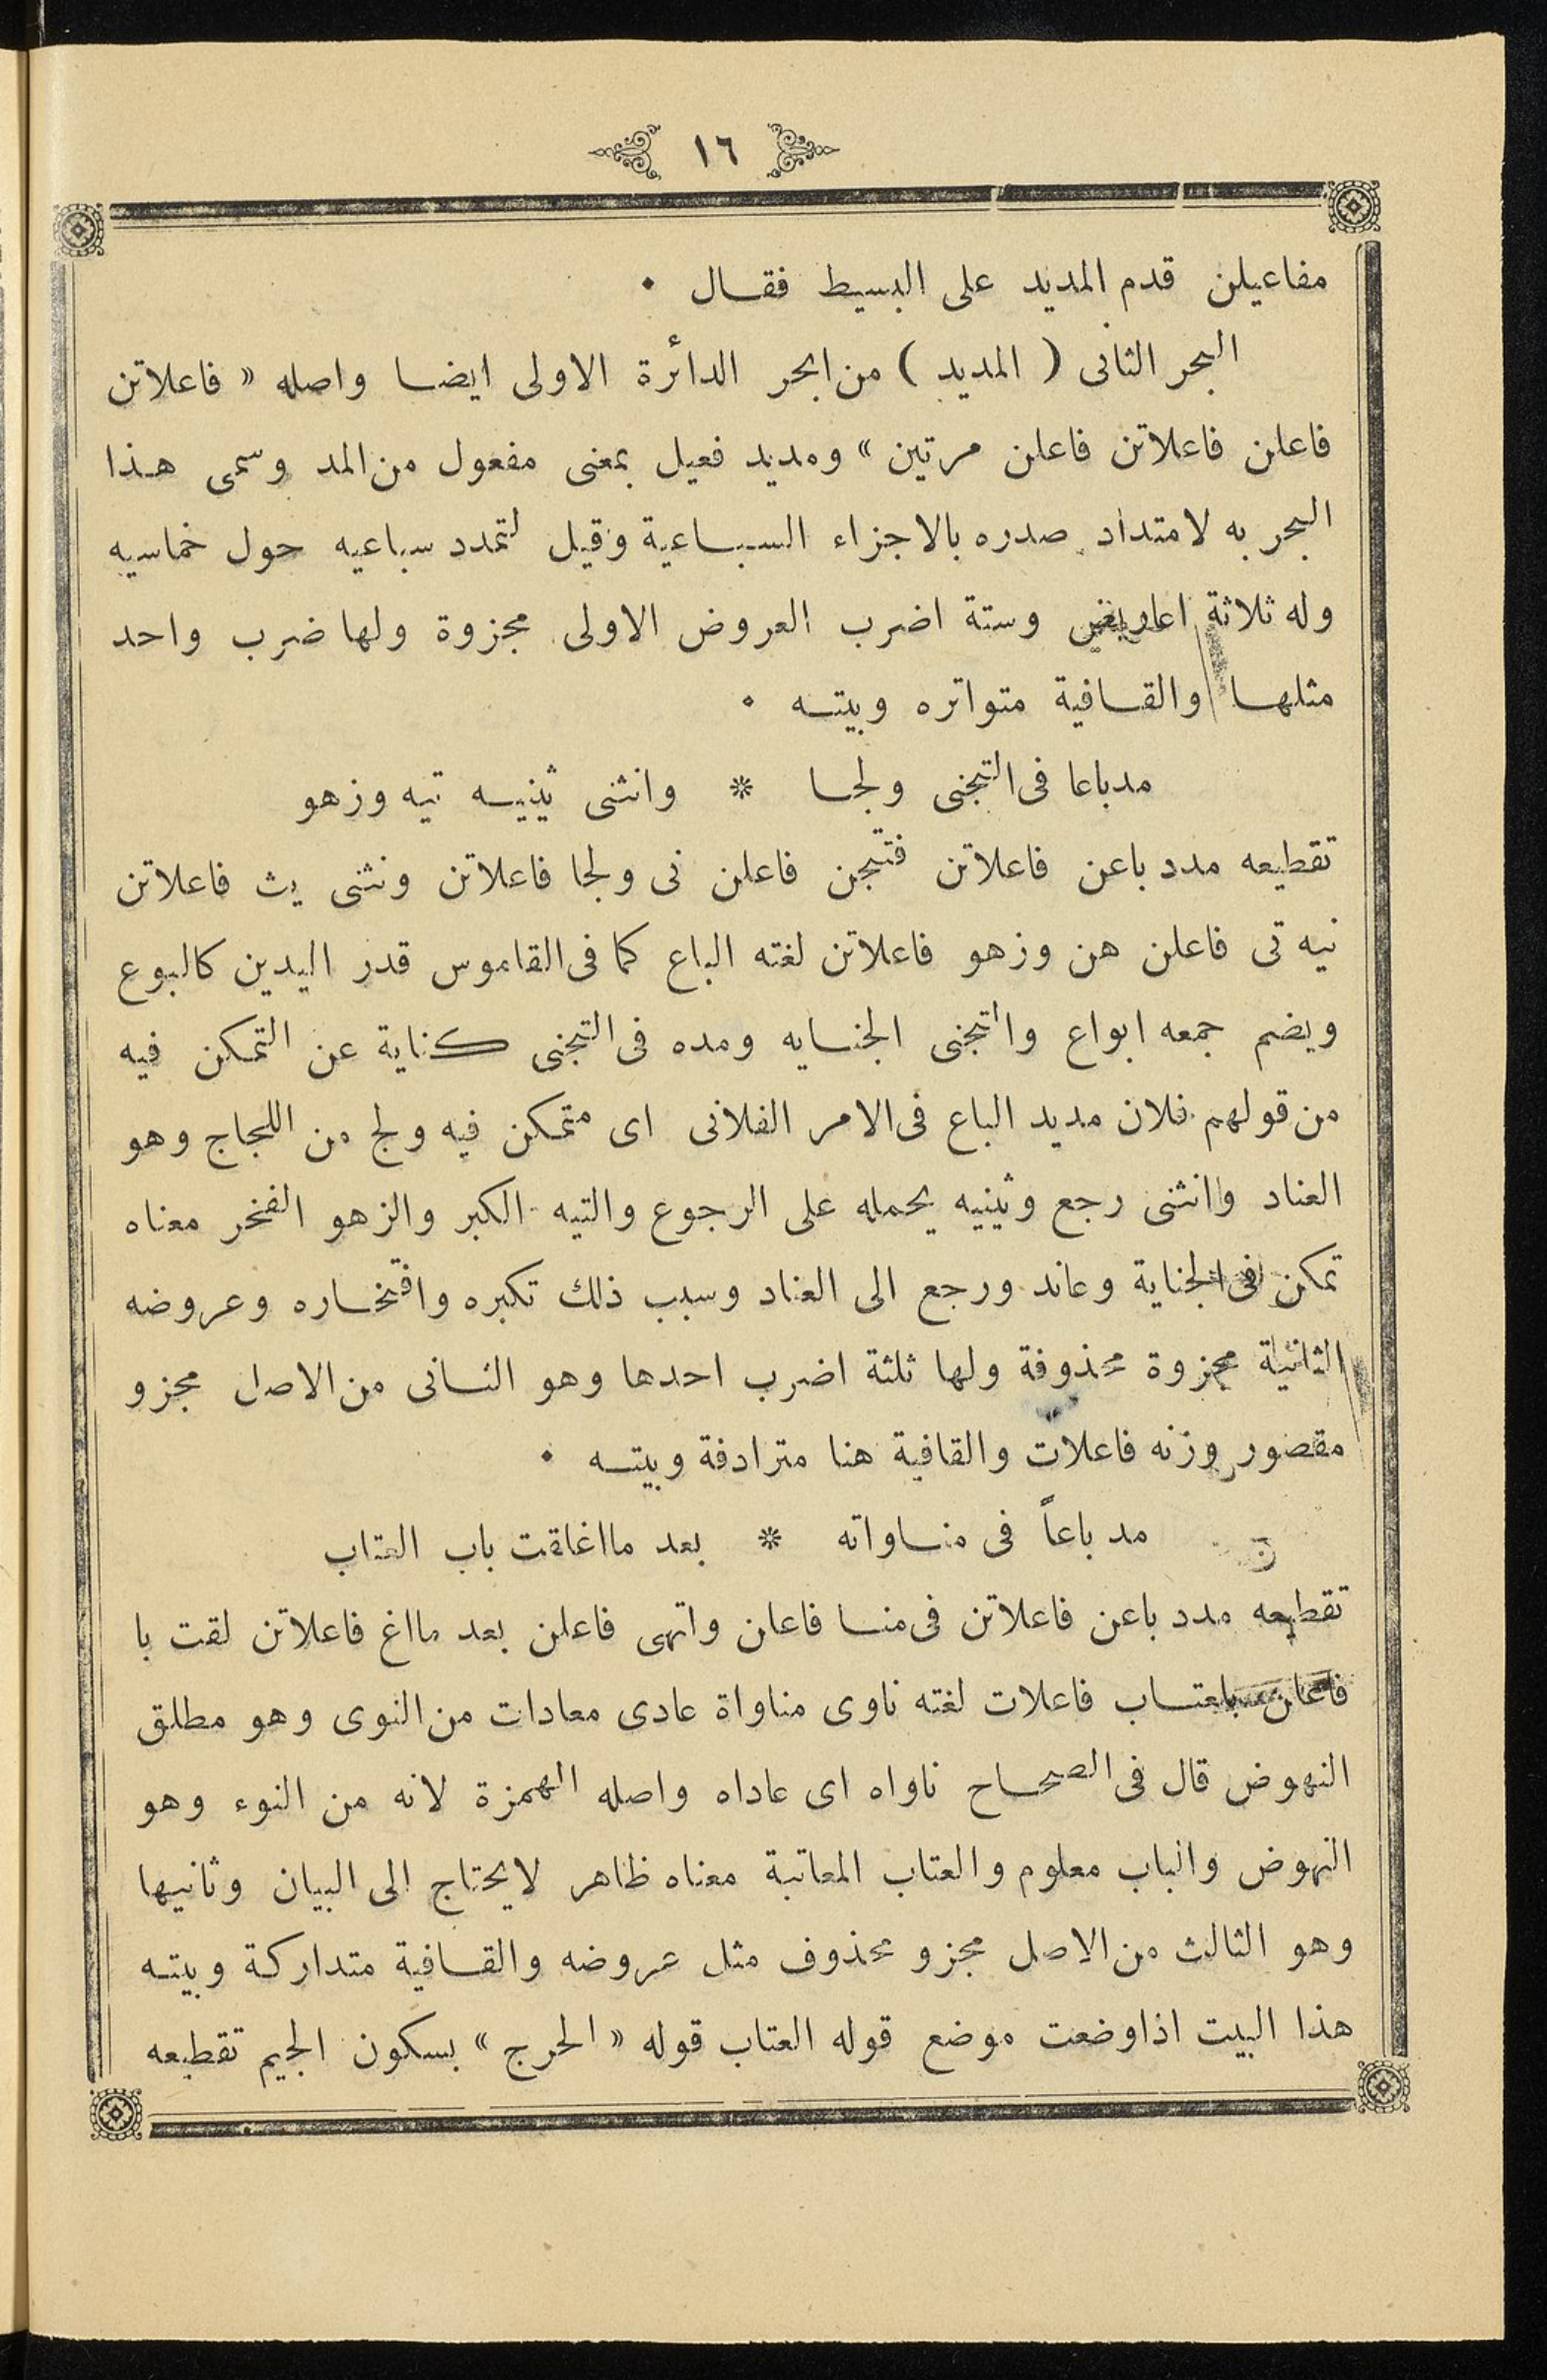 ١٦
مفاعيلن قدم المديد على البسيط فقال ٠
البحر الثانى ( المديد ) من ابحر الدائرة الاولى ايضا واصله « فاعلاتن
فاعلن فاعلاتن فاعلن مرتين » ومديد فعيل بمعنى مفعول من المد وسمى هذا
البحر به لامتداد صدره بالاجزاء السباعية وقيل لتمدد سباعيه حول خماسيه
وله ثلاثة اعاريض وستة اضرب العروض الاولى مجزوة ولها ضرب واحد
مثلها والقافية متواتره وبيته ٠
مدباعا فى التجنى ولجا * وانثنى يثنيه تيه وزهو
تقطيعه مدد باعن فاعلاتن فتتجن فاعلن نى ولجا فاعلاتن ونثنى يث فاعلاتن
نيه تى فاعلن هن وزهو فاعلاتن لغته الباع كما فى القاموس قدر اليدين كالبوع
ويضم جمعه ابواع والتجنى الجنايه ومده فى التجنى كناية عن التمكن فيه
من قولهم فلان مديد الباع فى الامر الفلانى اى متمكن فيه ولج من اللجاج وهو
العناد وانثنى رجع ويثنيه يحمله على الرجوع والتيه الكبر والزهو الفخر معناه
تمكن فى الجناية وعاند ورجع الى العناد وسبب ذلك تكبره وافتخاره وعروضه
الثانية مجزوة محذوفة ولها ثلثة اضرب احدها وهو الثانى من الاصل مجزو
مقصور وزنه فاعلات والقافية هنا مترادفة وبيته ٠
مد باعاً فى مناواته * بعد مااغلقت باب العتاب
تقطيعه مدد باعن فاعلاتن فى منا فاعلن واتهى فاعلن بعد مااغ فاعلاتن لقت با
فاعلن بلعتاب فاعلات لغته ناوى مناواة عادى معادات من النوى وهو مطلق
النهوض قال فى الصحاح ناواه اى عاداه واصله الهمزة لانه من النوء وهو
النهوض والباب معلوم والعتاب المعاتبة معناه ظاهر لايحتاج الى البيان وثانيها
وهو الثالث من الاصل مجزو محذوف مثل عروضه والقافية متداركة وبيته
هذا البيت اذاوضعت موضع قوله العتاب قوله « الحرج » بسكون الجيم تقطيعه